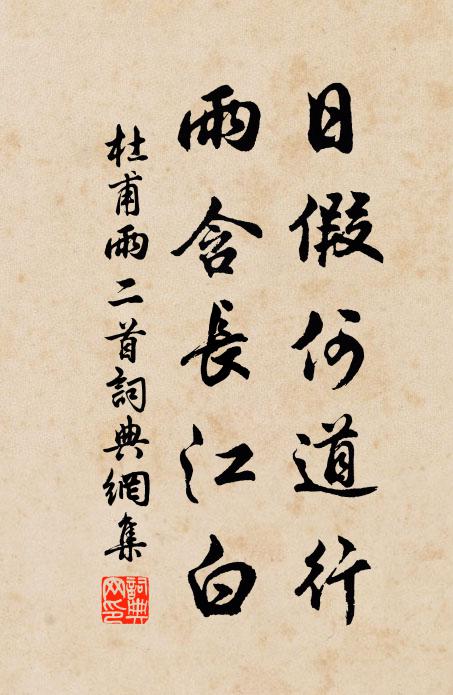 日假何道行
雨含長江白
杜甫雨二首詞典網集
詞典网印